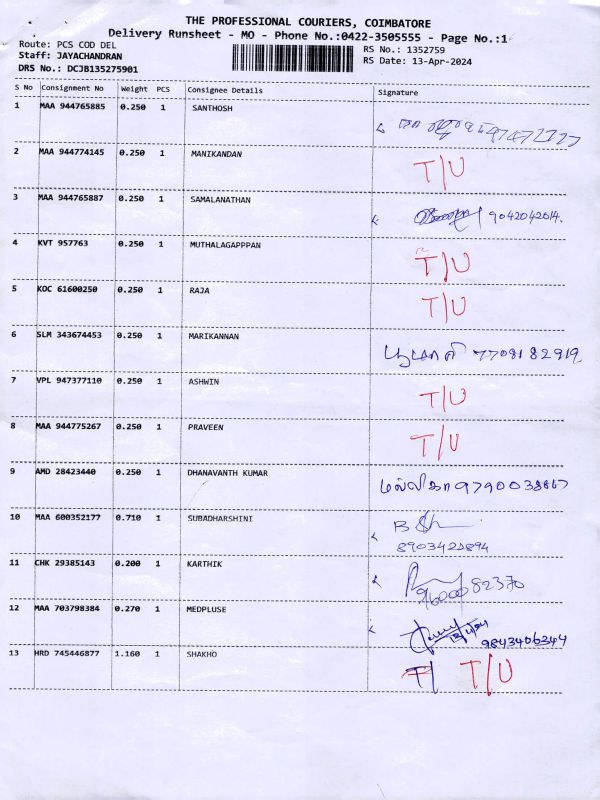 THE PROFESSIONAL COURIERS, COIMBATORE
Delivery Runsheet - MO - Phone No.:0422-3505555 - Page No.:1
Route: PCS COD DEL
RS No.: 1352759
Staff: JAYACHANDRAN
RS Date: 13-Apr-2024
DRS No.: DCJB135275901
S No Consignment No Weight PCS Consignee Details Signature
1 MAA 944765885 0.250 1 SANTHOSH
2 MAA 944774145 0.250 1 MANIKANDAN T/U
3 MAA 944765887 0.250 1 SAMALANATHAN 9042042014.
4 KVT 957763 0.250 1 MUTHALAGAPPPAN T/U
5 KOC 61600250 0.250 1 RAJA T/U
6 SLM 343674453 0.250 1 MARIKANNAN 7708182919
7 VPL 947377110 0.250 1 ASHWIN T/U
8 MAA 944775267 0.250 1 PRAVEEN T/U
9 AMD 28423440 0.250 1 DHANAVANTH KUMAR மல்லிகா 9790038867
10 MAA 600352177 0.710 1 SUBADHARSHINI
8903422894
11 CHK 29385143 0.200 1 KARTHIK 9600082370
12 MAA 703798384 0.270 1 MEDPLUSE 9843406344
13 HRD 745446877 1.160 1 SHAKHO T/ T/U